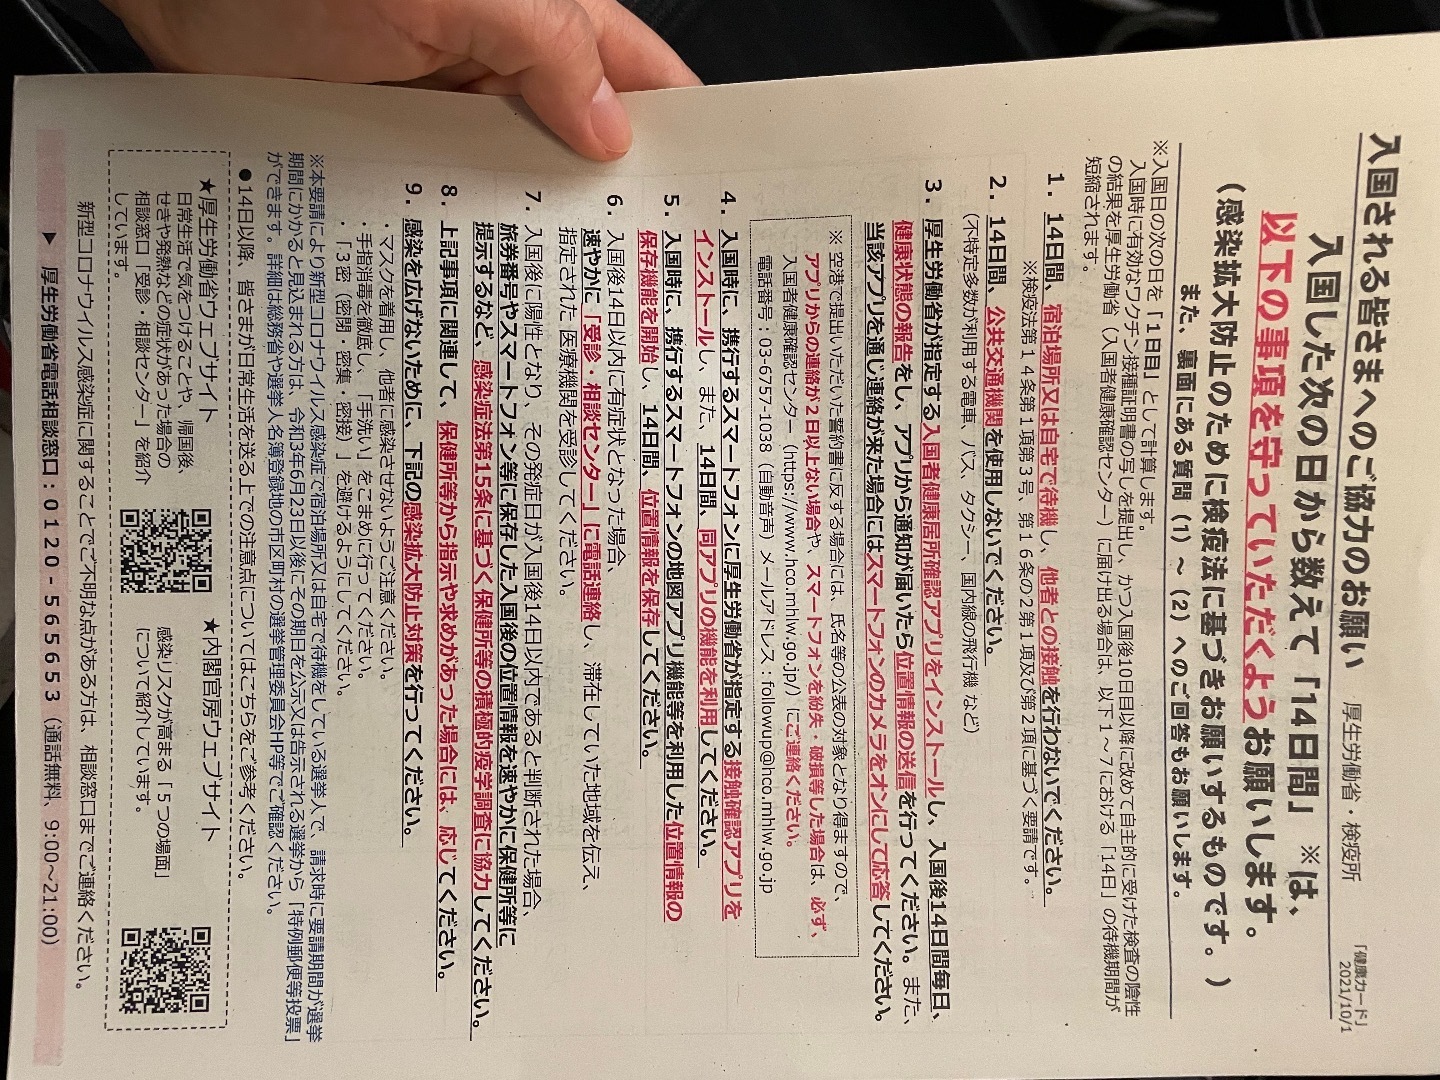 「健康カード」
2021/10/1
入国される皆さまへのご協力のお願い 厚生労働省・検疫所
入国した次の日から数えて「14日間」※は、
以下の事項を守っていただくようお願いします。
(感染拡大防止のために検疫法に基づきお願いするものです。)
また、裏面にある質問(1)~(2)へのご回答もお願いします。
※入国日の次の日を「1日目」として計算します。
入国時に有効なワクチン接種証明書の写しを提出し、かつ入国後10日目以降に改めて自主的に受けた検査の陰性
の結果を厚生労働省(入国者健康確認センター)に届け出る場合は、以下1~7における「14日」の待機期間が
短縮されます。
1.14日間、宿泊場所又は自宅で待機し、他者との接触を行わないでください。
※検疫法第14条第1項第3号、第16条の2第1項及び第2項に基づく要請です。
2.14日間、公共交通機関を使用しないでください。
(不特定多数が利用する電車、バス、タクシー、国内線の飛行機 など)
3.厚生労働省が指定する入国者健康居所確認アプリをインストールし、入国後14日間毎日、
健康状態の報告をし、アプリから通知が届いたら位置情報の送信を行ってください。また、
当該アプリを通じ連絡が来た場合にはスマートフォンのカメラをオンにして応答してください。
※ 空港で提出いただいた誓約書に反する場合には、氏名等の公表の対象となり得ますので、
アプリからの連絡が2日以上ない場合や、スマートフォンを紛失・破損等した場合は、必ず、
入国者健康確認センター(https://www.hco.mhlw.go.jp/)にご連絡ください。
電話番号:03-6757-1038(自動音声)メールアドレス:followup@hco.mhlw.go.jp
4.入国時に、携行するスマートフォンに厚生労働省が指定する接触確認アプリを
インストールし、また、14日間、同アプリの機能を利用してください。
5.入国時に、携行するスマートフォンの地図アプリ機能等を利用した位置情報の
保存機能を開始し、14日間、位置情報を保存してください。
6.入国後14日以内に有症状となった場合、
速やかに「受診・相談センター」に電話連絡し、滞在していた地域を伝え、
指定された医療機関を受診してください。
7.入国後に陽性となり、その発症日が入国後14日以内であると判断された場合、
旅券番号やスマートフォン等に保存した入国後の位置情報を速やかに保健所等に
提示するなど、感染症法第15条に基づく保健所等の積極的疫学調査に協力してください。
8.上記事項に関連して、保健所等から指示や求めがあった場合には、応じてください。
9.感染を広げないために、下記の感染拡大防止対策を行ってください。
・マスクを着用し、他者に感染させないようご注意ください。
・手指消毒を徹底し、「手洗い」をこまめに行ってください。
・「3密(密閉・密集・密接)」を避けるようにしてください。
※本要請により新型コロナウイルス感染症で宿泊場所又は自宅で待機をしている選挙人で、請求時に要請期間が選挙
期間にかかると見込まれる方は、令和3年6月23日以後にその期日を公示又は告示される選挙から「特例郵便等投票」
ができます。詳細は総務省や選挙人名簿登録地の市区町村の選挙管理委員会HP等でご確認ください。
●14日以降、皆さまが日常生活を送る上での注意点についてはこちらをご参考ください。
★厚生労働省ウェブサイト
日常生活で気をつけることや、帰国後、
せきや発熱などの症状があった場合の
相談窓口「受診・相談センター」を紹介
しています。
★内閣官房ウェブサイト
感染リスクが高まる「5つの場面」
について紹介しています。
新型コロナウイルス感染症に関することでご不明な点がある方は、相談窓口までご連絡ください。
▶ 厚生労働省電話相談窓口:0120-565653(通話無料、9:00~21:00)